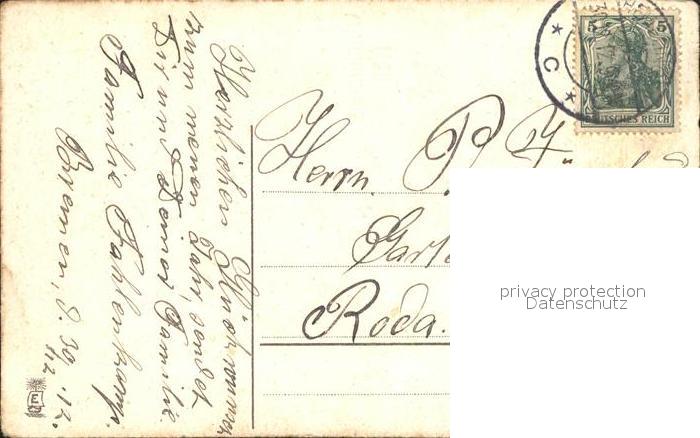 Herzlichen Glückwunsch
zum neuen Jahr, sendet
Dir und Deiner Familie
Familie Fahlenkamp.
Bremen, d. 30. 12.
12
Herrn P.
Roda.
5 5
DEUTSCHES REICH
* C *
E
privacy protection
Datenschutz